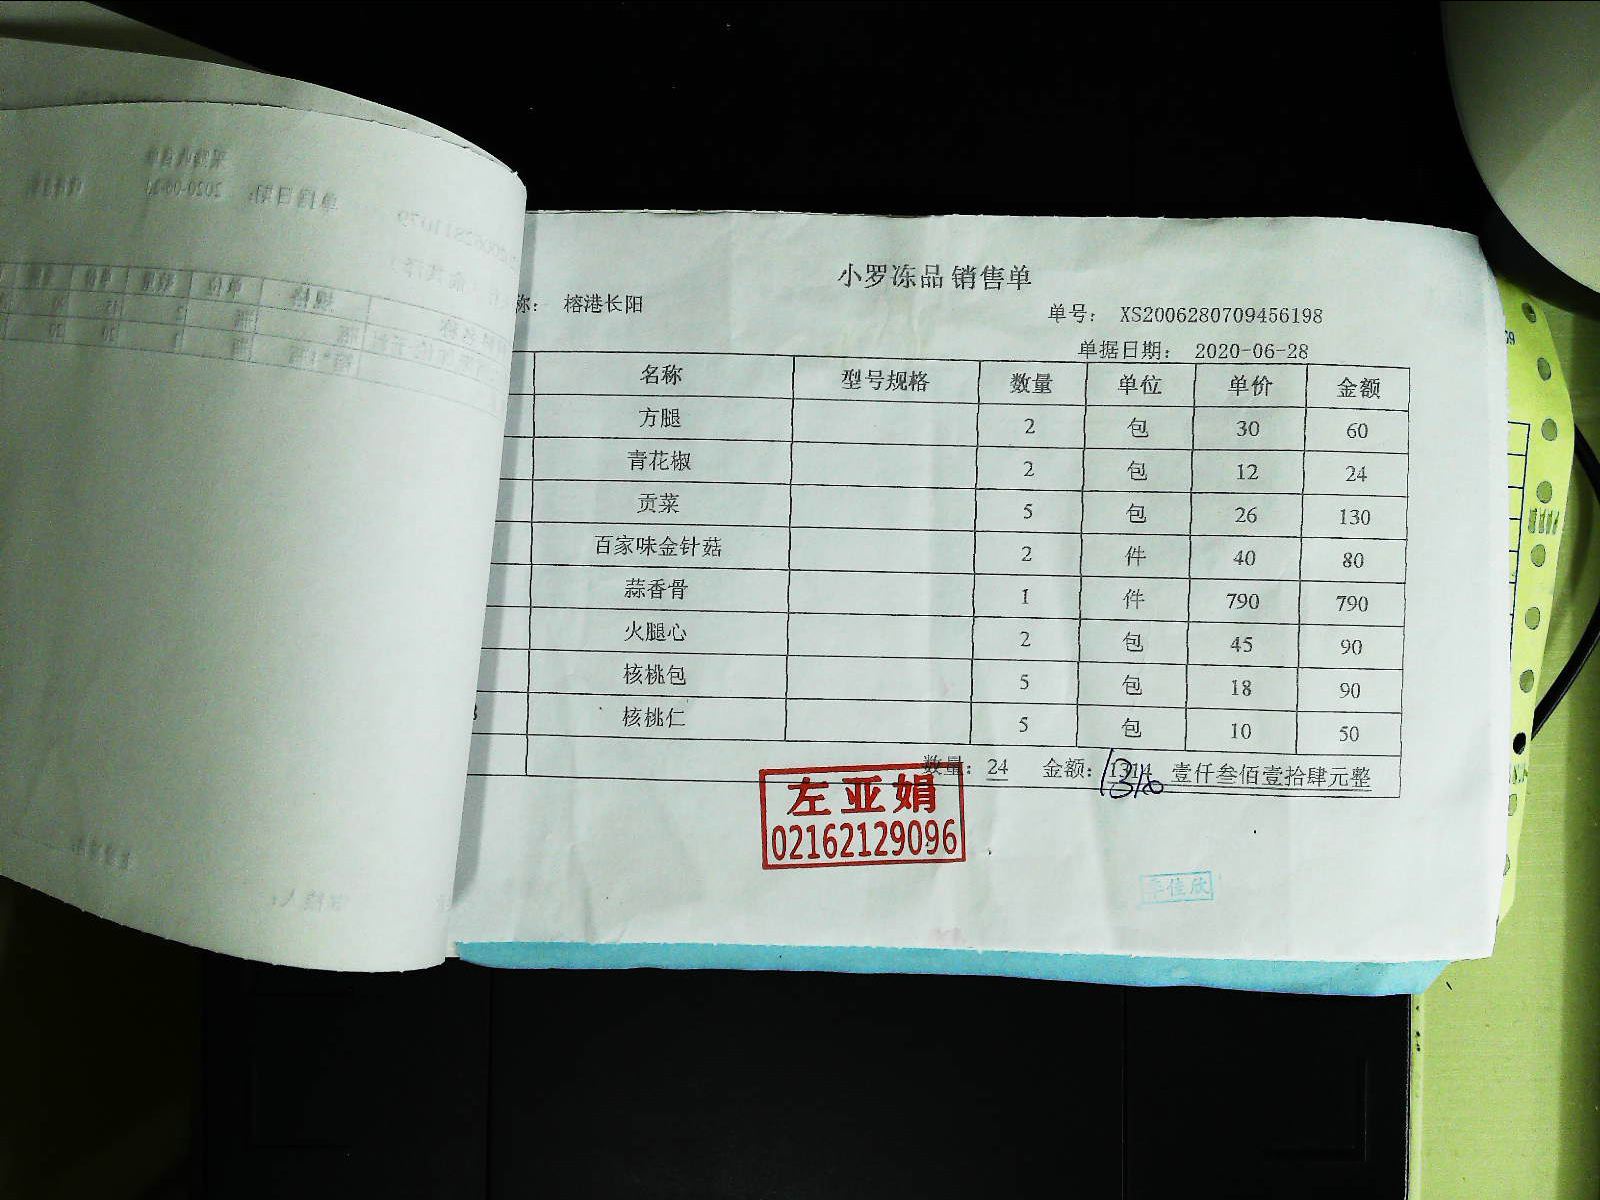 小罗冻品 销售单
称： 榕港长阳
单号： XS2006280709456198
单据日期： 2020-06-28
名称 型号规格 数量 单位 单价 金额
方腿 2 包 30 60
青花椒 2 包 12 24
贡菜 5 包 26 130
百家味金针菇 2 件 40 80
蒜香骨 1 件 790 790
火腿心 2 包 45 90
核桃包 5 包 18 90
核桃仁 5 包 10 50
数量：24 金额：1314 壹仟叁佰壹拾肆元整
左亚娟
02162129096
佳欣